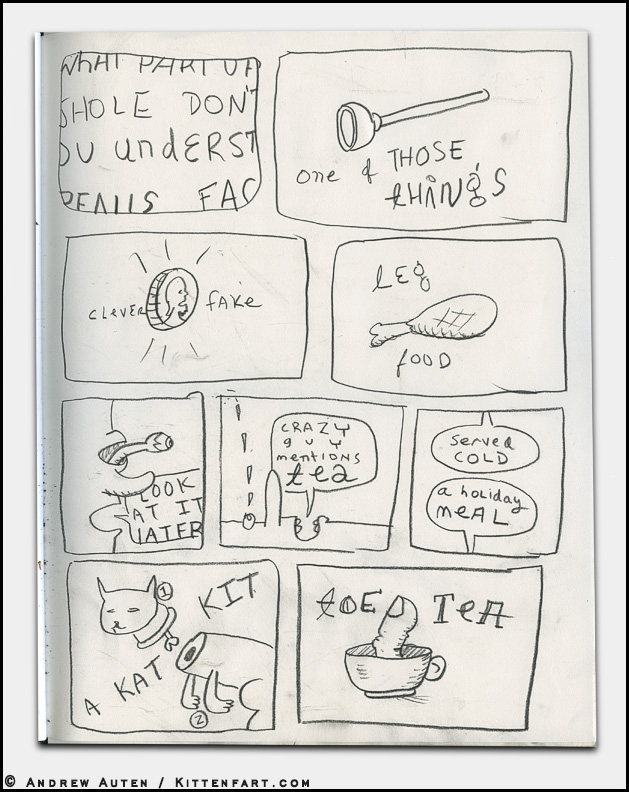 WHAT PART OF
SHOLE DON'T
OU UNDERST
REALLS FAC
one of THOSE
tHiNgS
CLEVER FAKE
LEG
FOOD
LOOK
AT IT
LATER
CRAZY
guy
mentions
tea
served
COLD
a holiday
meAL
1
KIT
A KAT
2
tOED TEA
© ANDREW AUTEN / KITTENFART.COM